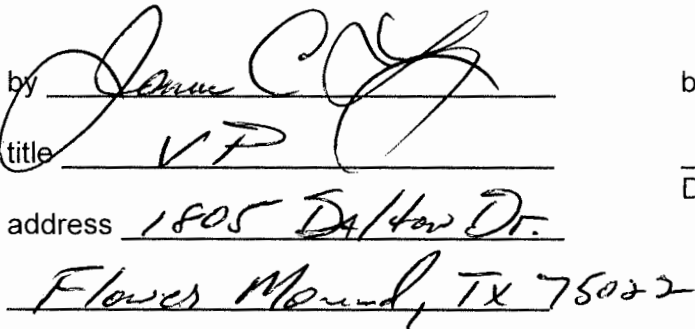 by C b
title VP
D
address 1805 Dalton Dr.
Flower Mound, TX 75022